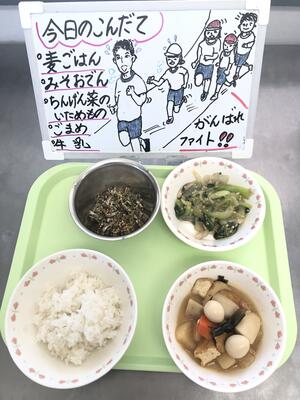 今日のこんだて
・麦ごはん
・みそおでん
・ちんげん菜の
いためもの
・ごまめ
・牛乳
がんばれ
ファイト!!